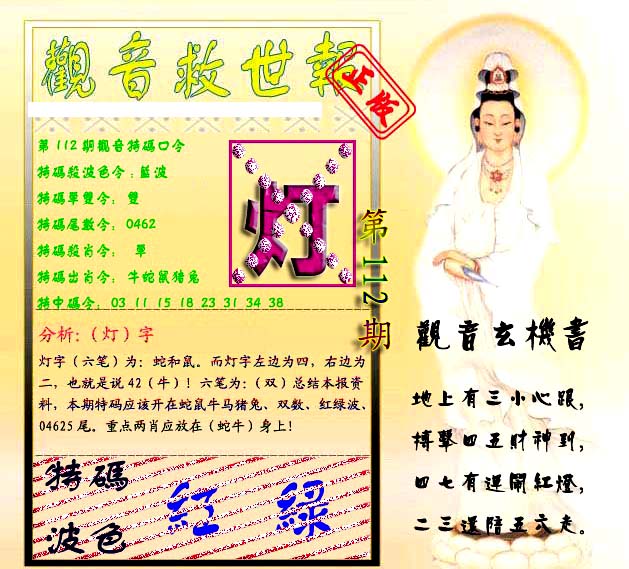 觀音救世報
正版
第112期觀音特碼口令
特碼殺波色令:藍波
特碼單雙令: 雙
特碼尾數令: 0462
特碼殺肖令: 單
特碼出肖令: 牛蛇鼠猪兔
特中碼令: 03 11 15 18 23 31 34 38
灯
第112期
分析:(灯)字
灯字(六笔)为:蛇和鼠。而灯字左边为四,右边为
二,也就是说42(牛)!六笔为:(双)总结本报资
料,本期特码应该开在蛇鼠牛马猪兔、双数、红绿波、
04625尾。重点两肖应放在(蛇牛)身上!
特碼
波色
紅 綠
觀音玄機書
地上有三小心跟,
搏擊四五財神到,
四七有運開紅燈,
二三還陪五六走。